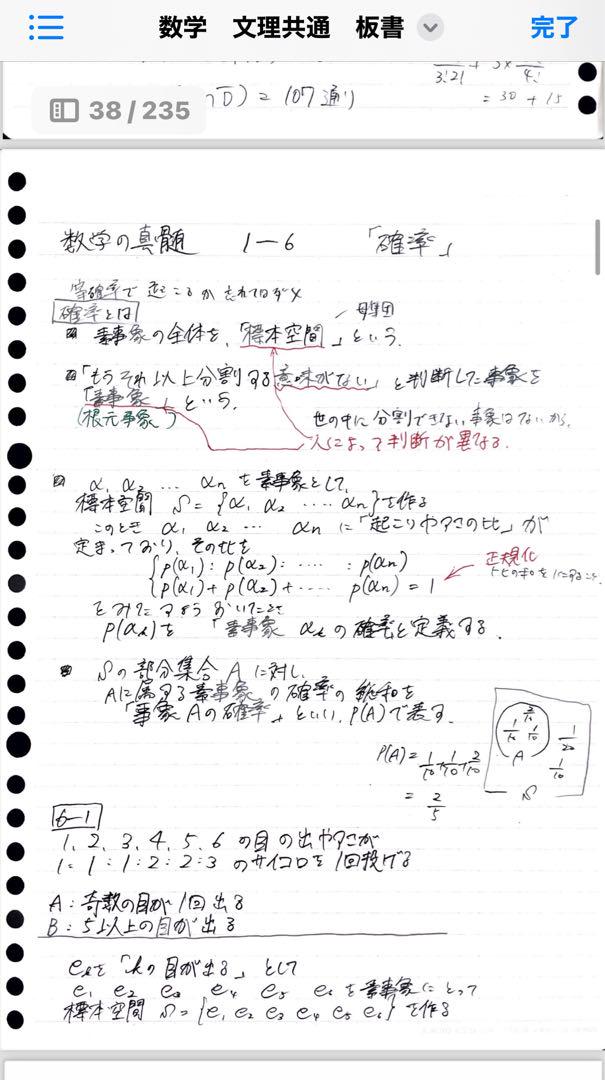 数学 文理共通 板書
完了
38/235
3!2! + 3× 4!
) = 107通り
= 30 + 15
数学の真髄 1-6 「確率」
等確率で起こるか
確率とは
素事象の全体を、「標本空間」という。
母集団
「もうそれ以上分割する意味がない」と判断した事象を
「素事象」という。
(根元事象)
世の中に分割できない事象はないから、
人によって判断が異なる。
α₁ α₂ … αn を素事象として、
標本空間 Ω = {α₁ α₂ …… αn}を作る
このとき α₁ α₂ … αn に「起こりやすさの比」が
定まっており、その比を
p(α₁) : p(α₂) : …… : p(αn)
p(α₁) + p(α₂) + …… p(αn) = 1
正規化
をみたすようおいたとき
p(αk)を 「素事象 αk の確率と定義する。
Ωの部分集合 A に対し、
Aに属する素事象 の確率の総和を
「事象Aの確率」といい、P(A)で表す。
P(A) = 1/10 + 1/10 + 2/10
= 2/5
2/10
1/10 1/10
A
1/20
1/10
Ω
6-1
1、2、3、4、5、6 の目の出やすさが
1:1:1:2:2:3 のサイコロを1回投げる
A:奇数の目が1回出る
B:5以上の目が出る
ekを「kの目が出る」として
e₁ e₂ e₃ e₄ e₅ e₆ を素事象にとって
標本空間 Ω = {e₁ e₂ e₃ e₄ e₅ e₆} を作る